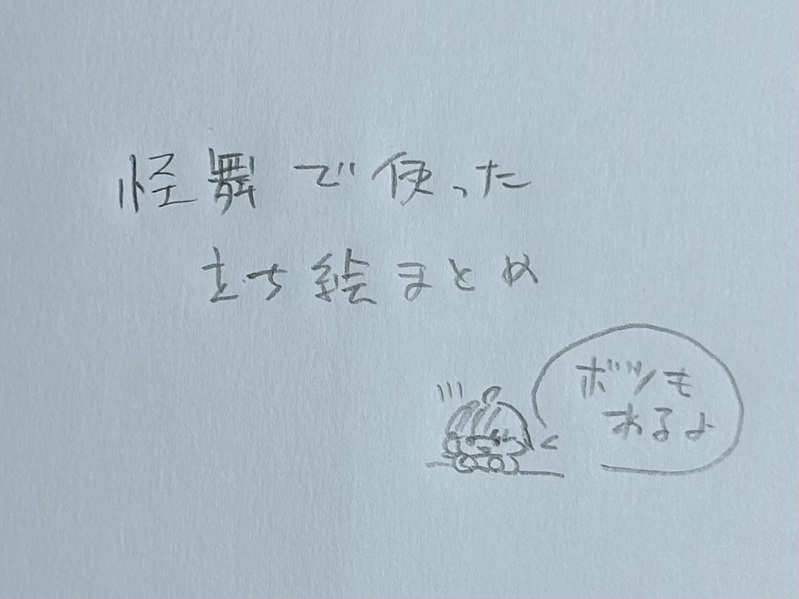 怪舞で使った
立ち絵まとめ
ボツも
あるよ